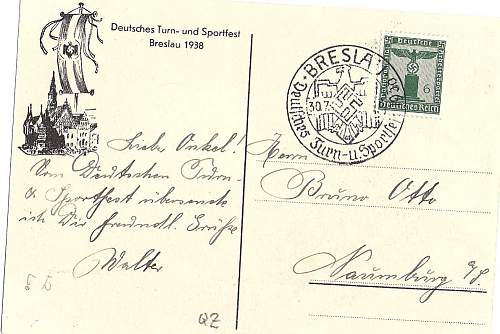 Deutsches Turn- und Sportfest
Breslau 1938
BRESLAU
30.7.
Deutsches Turn-u. Sportfest
6
Deutsches Reich
Lieber Onkel!
Vom Deutschen Turn-
& Sportfest übersende
ich Dir freundl. Grüße
Walter
Herrn
Bruno Otto
Naumburg a/S.
QZ